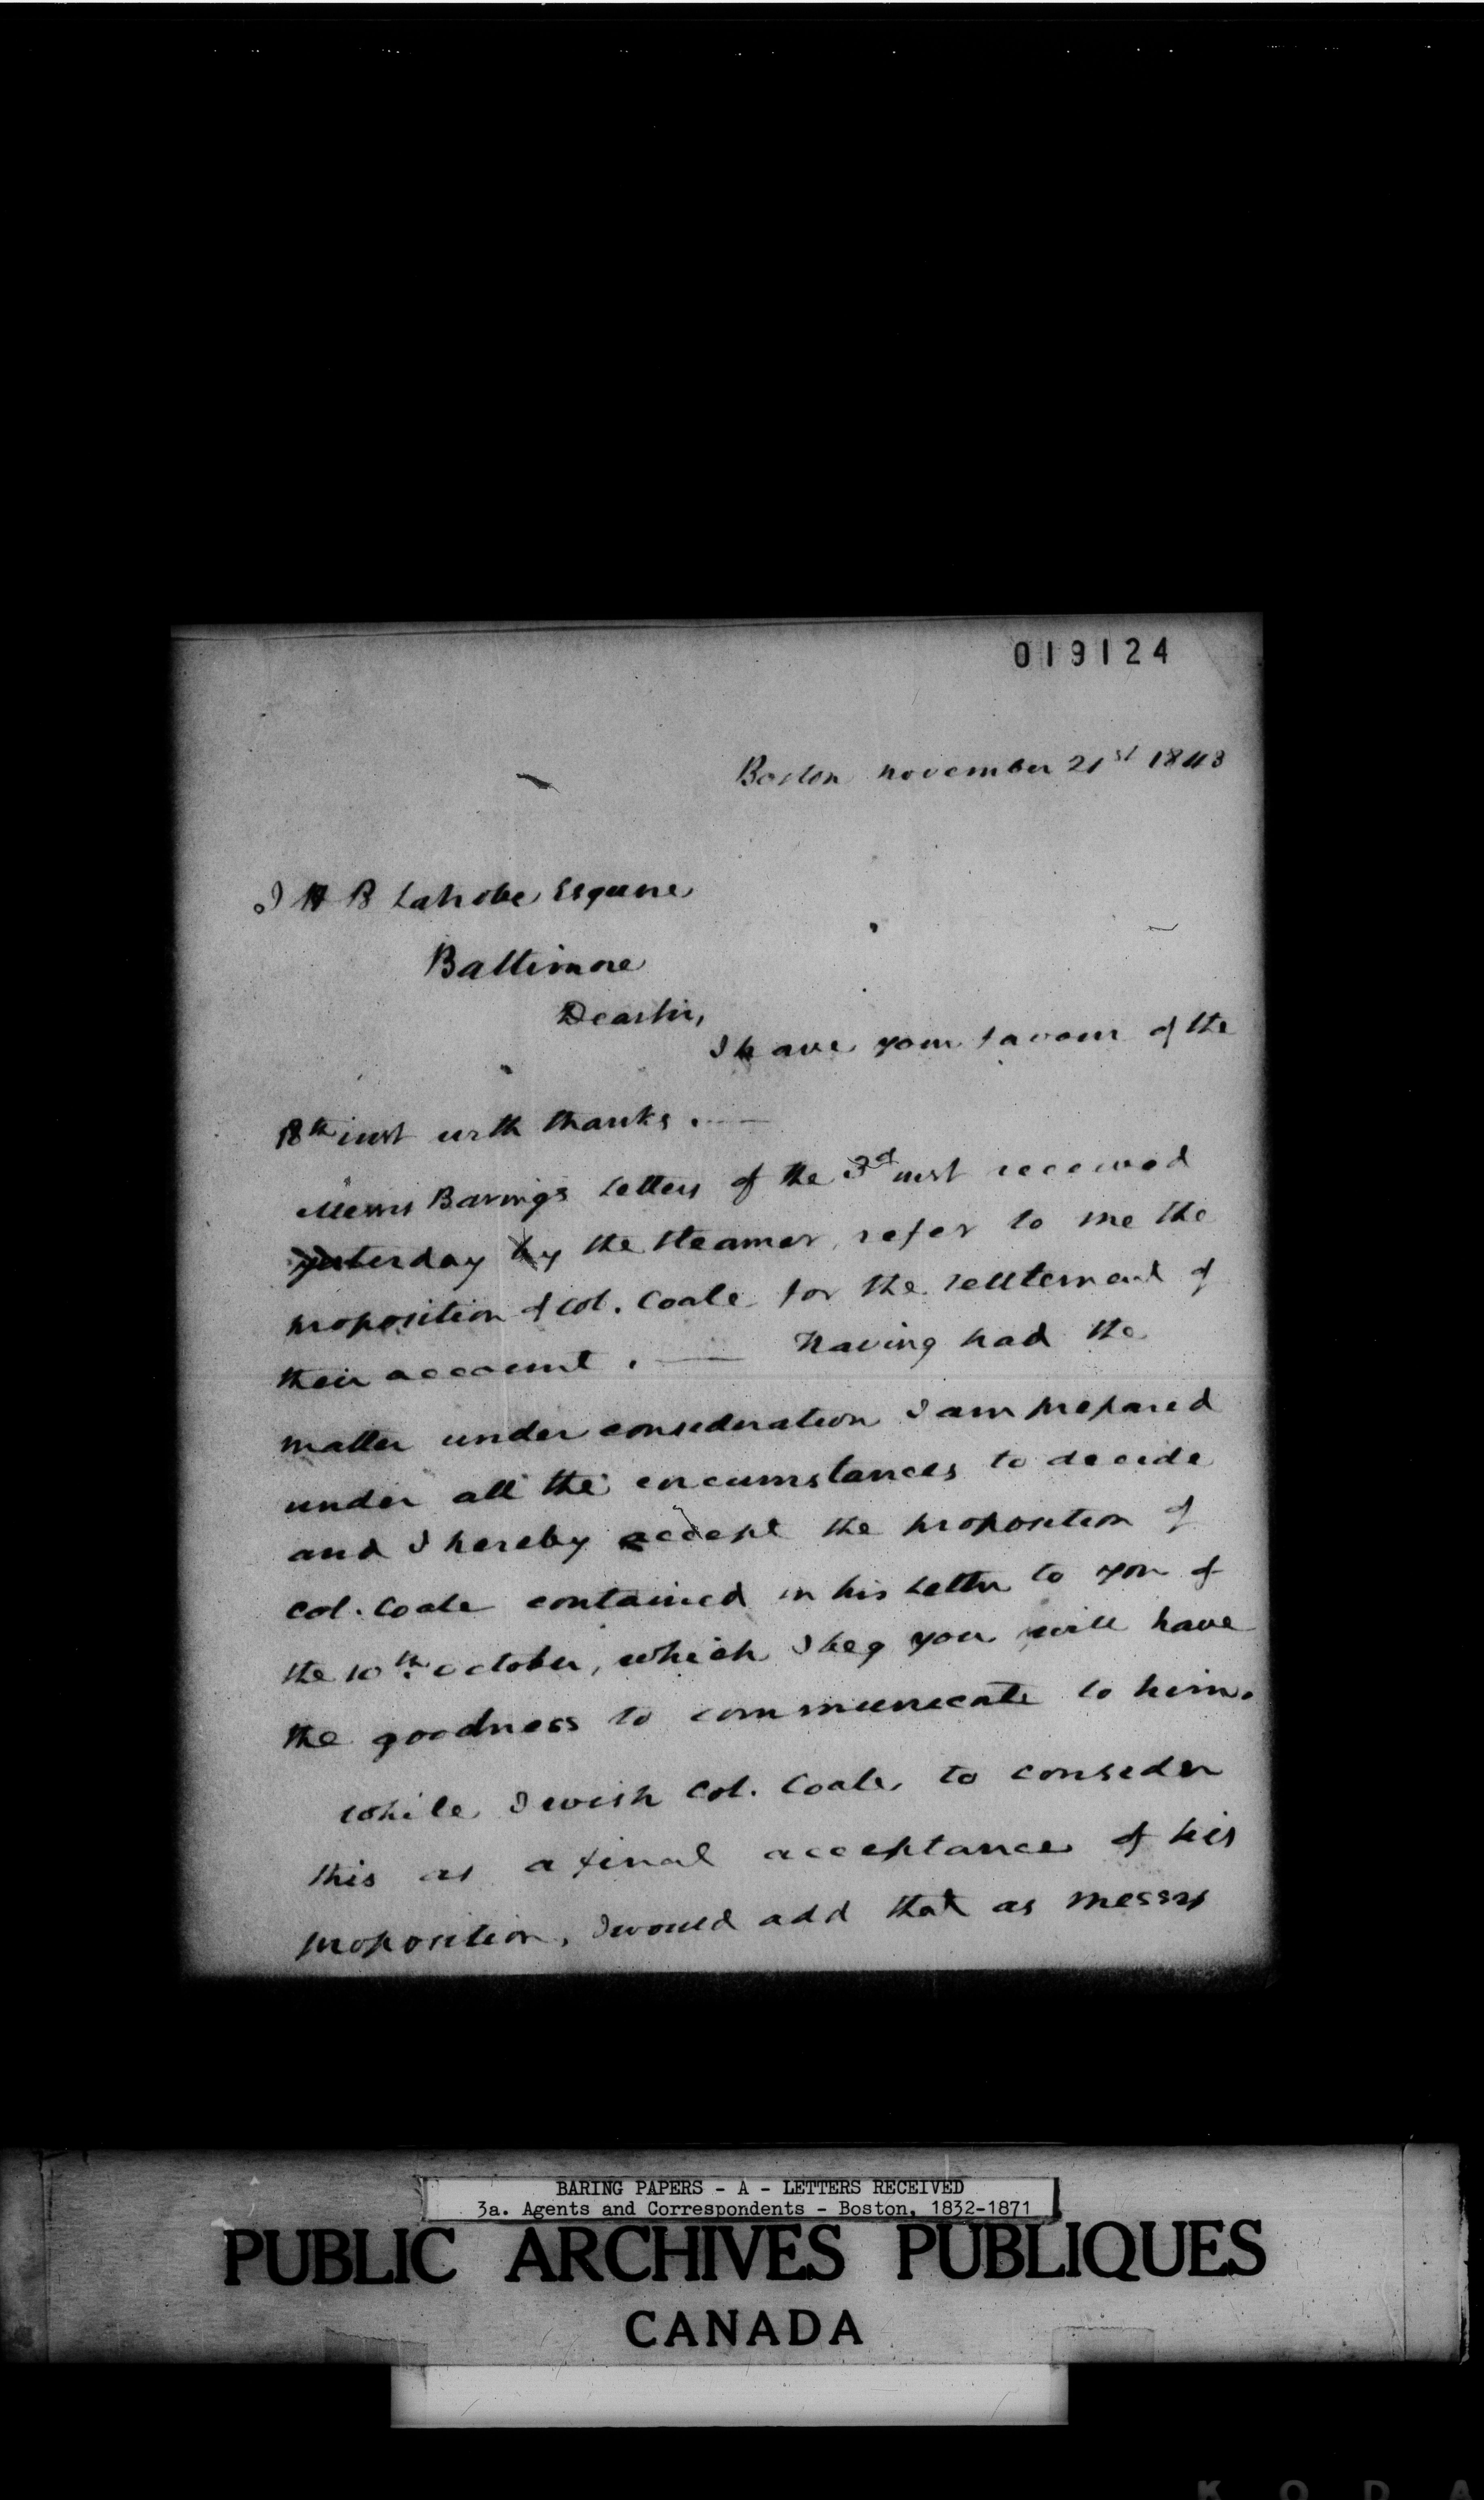 019124
Boston november 21st 1843
J H B Latrobe Esquire
Baltimore
Dear Sir,
I have your favour of the
18th inst with thanks. —
Messrs Barings Letters of the 3d inst received
yesterday by the steamer, refer to me the
proposition of Col. Coale for the settlement of
their account. — Having had the
matter under consideration I am prepared
under all the circumstances to decide
and I hereby accept the proposition of
Col. Coale contained in his Letter to you of
the 10th October, which I beg you will have
the goodness to communicate to him.
While I wish Col. Coale to consider
this as a final acceptance of his
proposition, I would add that as Messrs
BARING PAPERS - A - LETTERS RECEIVED
3a. Agents and Correspondents - Boston, 1832-1871
PUBLIC ARCHIVES PUBLIQUES
CANADA
K O D A